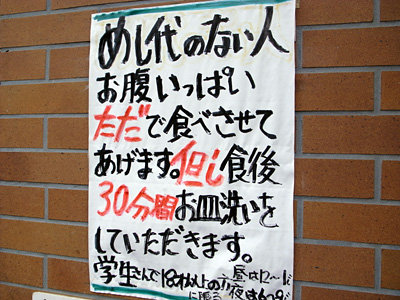 めし代のない人
お腹いっぱい
ただで食べさせて
あげます。但し食後
30分間お皿洗いを
していただきます。
学生さんで18才以上の方
に限る 昼は12〜
夜は6〜9